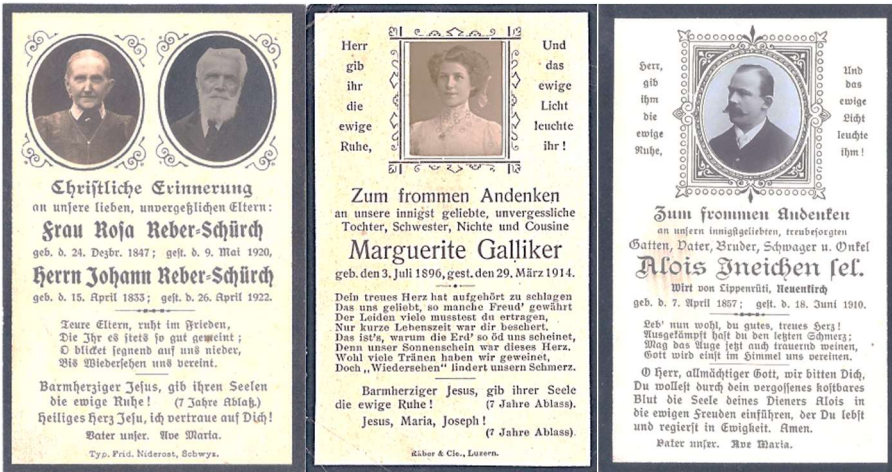 Christliche Erinnerung
an unsere lieben, unvergeßlichen Eltern:
Frau Rosa Reber-Schürch
geb. d. 24. Dezbr. 1847; gest. d. 9. Mai 1920,
Herrn Johann Reber-Schürch
geb. d. 15. April 1833; gest. d. 26. April 1922.
Teure Eltern, ruht im Frieden,
Die Ihr es stets so gut gemeint;
O blicket segnend auf uns nieder,
Bis Wiedersehen uns vereint.
Barmherziger Jesus, gib ihren Seelen
die ewige Ruhe! (7 Jahre Ablaß.)
Heiliges Herz Jesu, ich vertraue auf Dich!
Vater unser. Ave Maria.
Typ. Frid. Niderost, Schwyz.
Herr
gib
ihr
die
ewige
Ruhe,
Und
das
ewige
Licht
leuchte
ihr!
Zum frommen Andenken
an unsere innigst geliebte, unvergessliche
Tochter, Schwester, Nichte und Cousine
Marguerite Galliker
geb. den 3. Juli 1896, gest. den 29. März 1914.
Dein treues Herz hat aufgehört zu schlagen
Das uns geliebt, so manche Freud' gewährt
Der Leiden viele musstest du ertragen,
Nur kurze Lebenszeit war dir beschert.
Das ist's, warum die Erd' so öd uns scheinet,
Denn unser Sonnenschein war dieses Herz.
Wohl viele Tränen haben wir geweinet,
Doch „Wiedersehen" lindert unsern Schmerz.
Barmherziger Jesus, gib ihrer Seele
die ewige Ruhe! (7 Jahre Ablass).
Jesus, Maria, Joseph!
(7 Jahre Ablass).
Räber & Cie., Luzern.
Herr,
gib
ihm
die
ewige
Ruhe,
Und
das
ewige
Licht
leuchte
ihm!
Zum frommen Andenken
an unsern innigstgeliebten, treubesorgten
Gatten, Vater, Bruder, Schwager u. Onkel
Alois Ineichen sel.
Wirt von Lippenrüti, Neuenkirch
geb. d. 7. April 1857; gest. d. 18. Juni 1910.
Leb' nun wohl, du gutes, treues Herz!
Ausgekämpft hast du den letzten Schmerz;
Mag das Auge jetzt auch trauernd weinen,
Gott wird einst im Himmel uns vereinen.
O Herr, allmächtiger Gott, wir bitten Dich,
Du wollest durch dein vergossenes kostbares
Blut die Seele deines Dieners Alois in
die ewigen Freuden einführen, der Du lebst
und regierst in Ewigkeit. Amen.
Vater unser. Ave Maria.